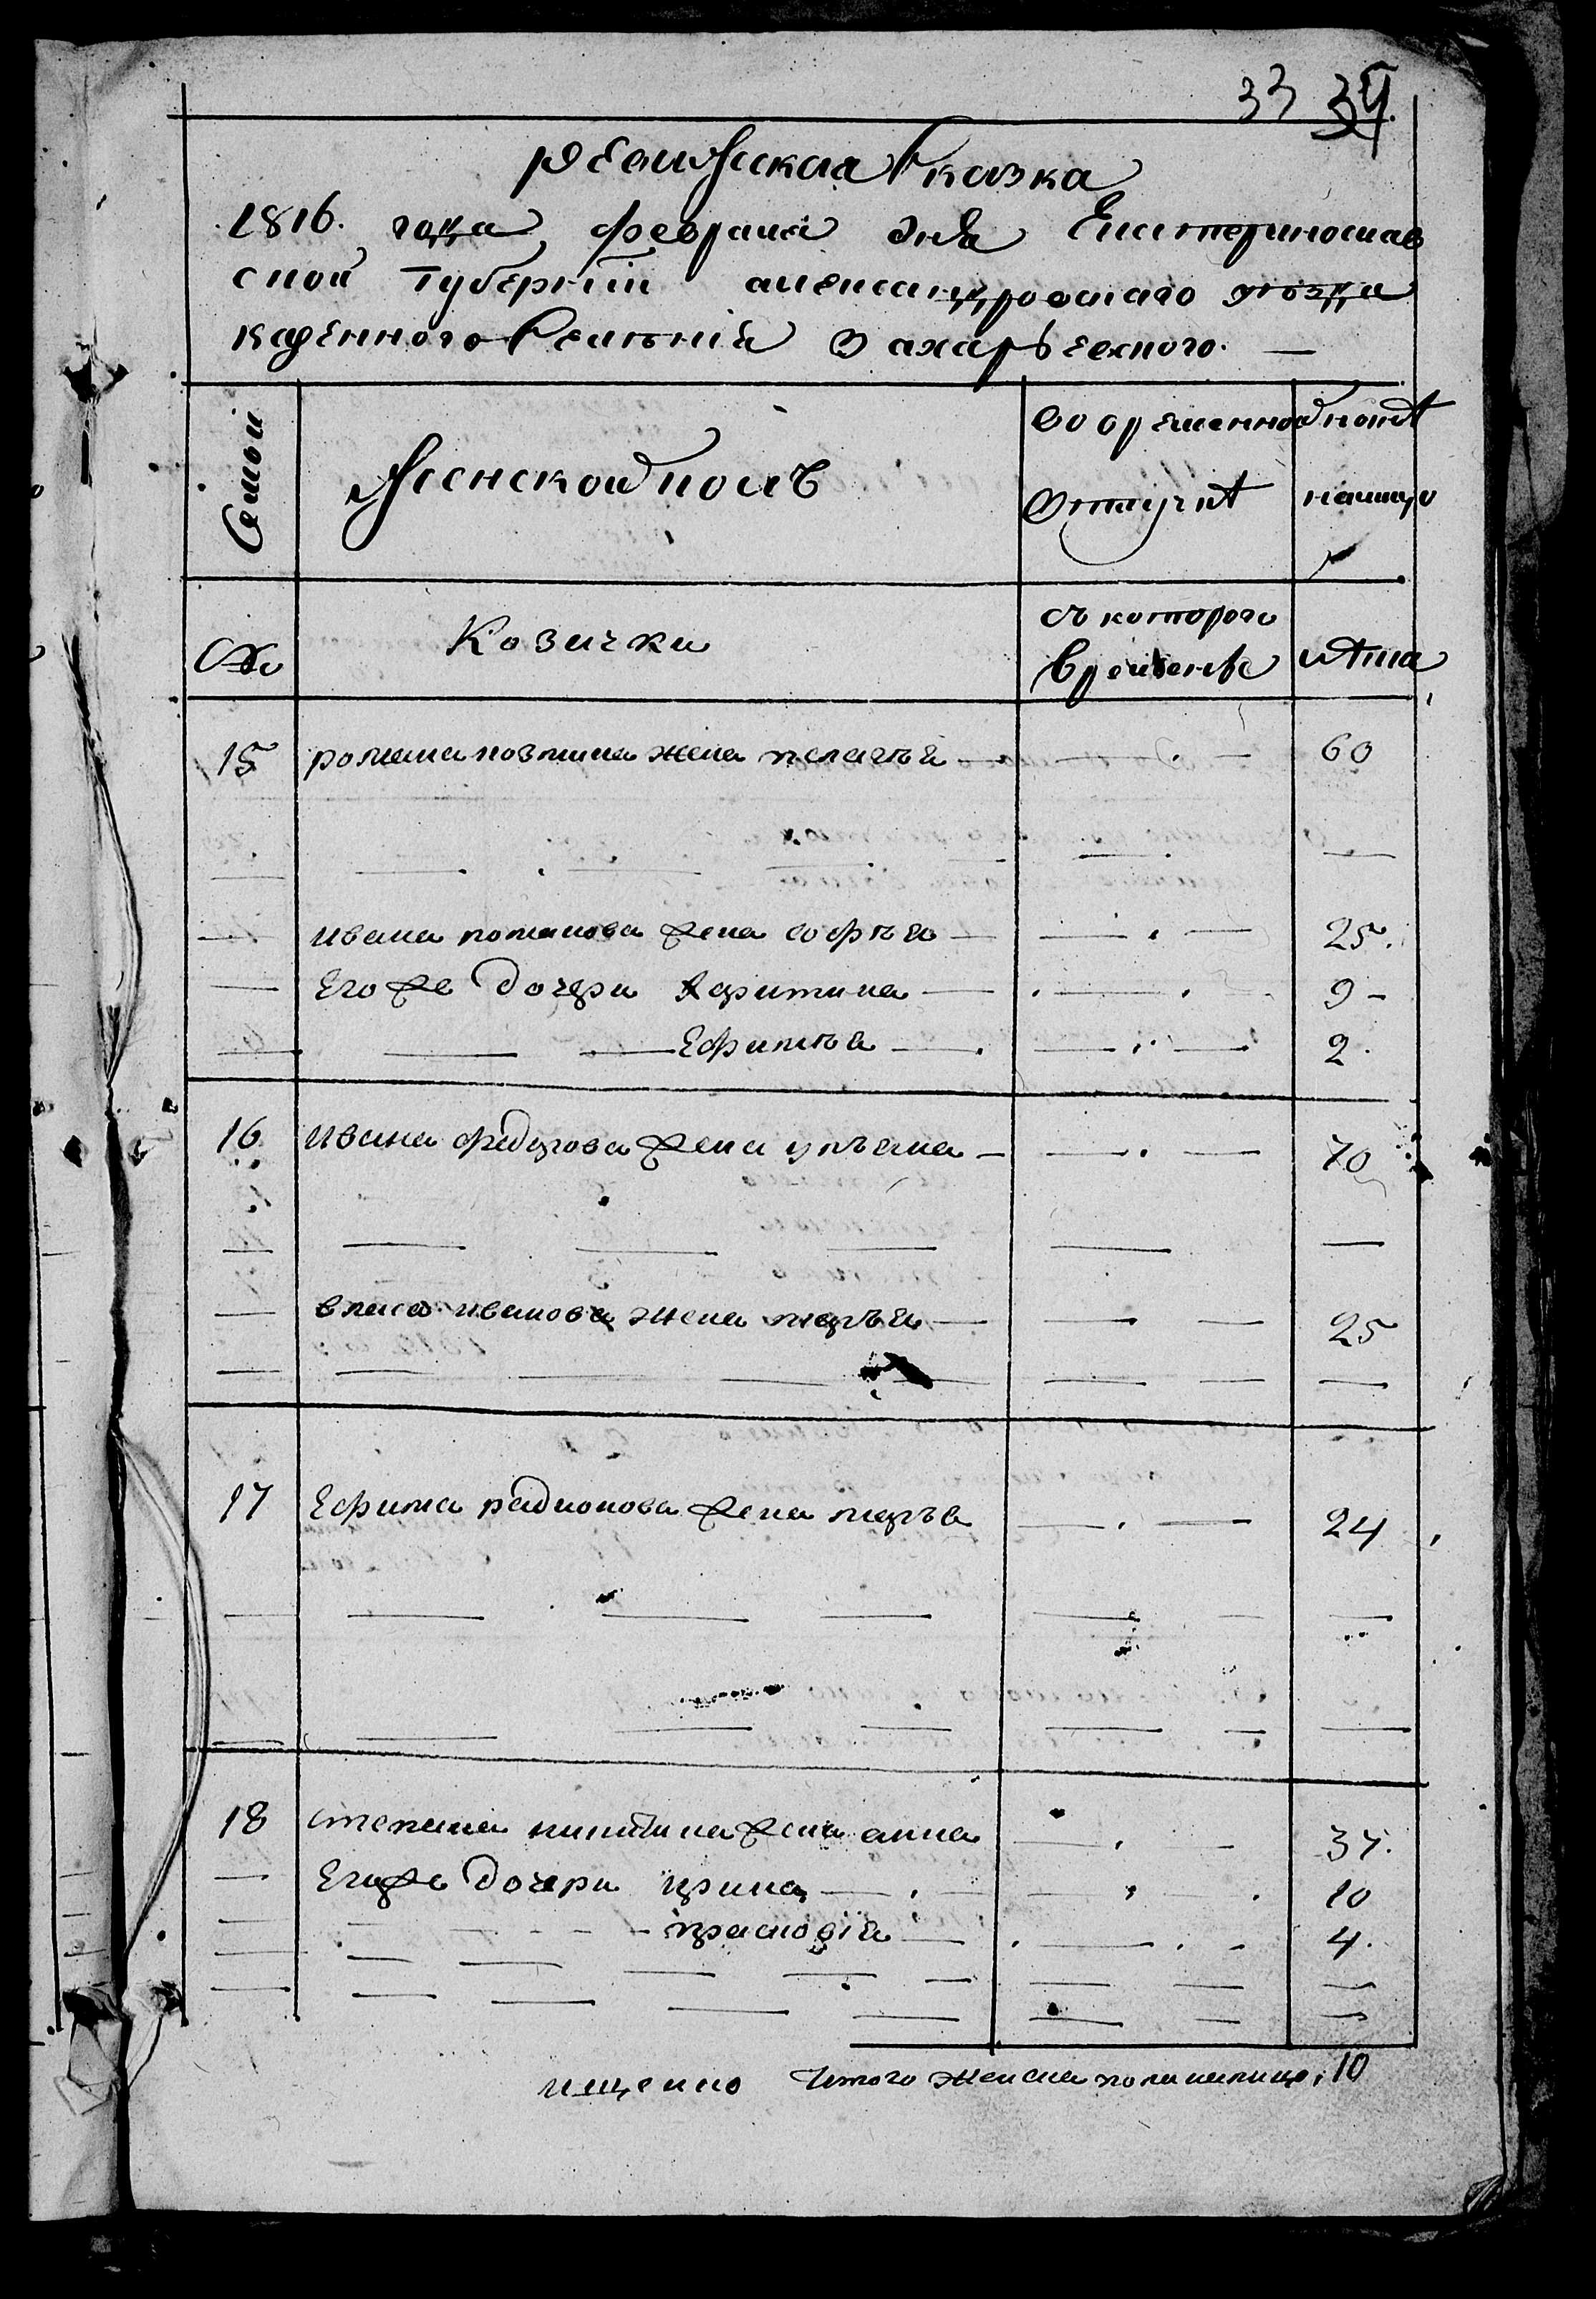 33 34
ревижская сказка
1816. года февраля дня Екатеринослав
ской губернии александровскаго уезда
казенного селения Захарьевского. —
Семьи
Женской полъ
во временной
отлучкѣ
нынѣ
налицо
№
Козички
съ которого
времени
лѣта
15 романа жена пелагѣя — 60
Ивана романова жена софѣя — 25.
Его же дочери Харитина — 9
Ефимѣя — 2.
16 Ивана федорова жена улъяна — 70
власа иванова жена марья — 25
17 Ефима радионова жена марья — 24
18 степана никитина жена анна — 37.
Его же дочери ирина — 10
праскодія — 4.
ищенно Итого женска пола налицо 10